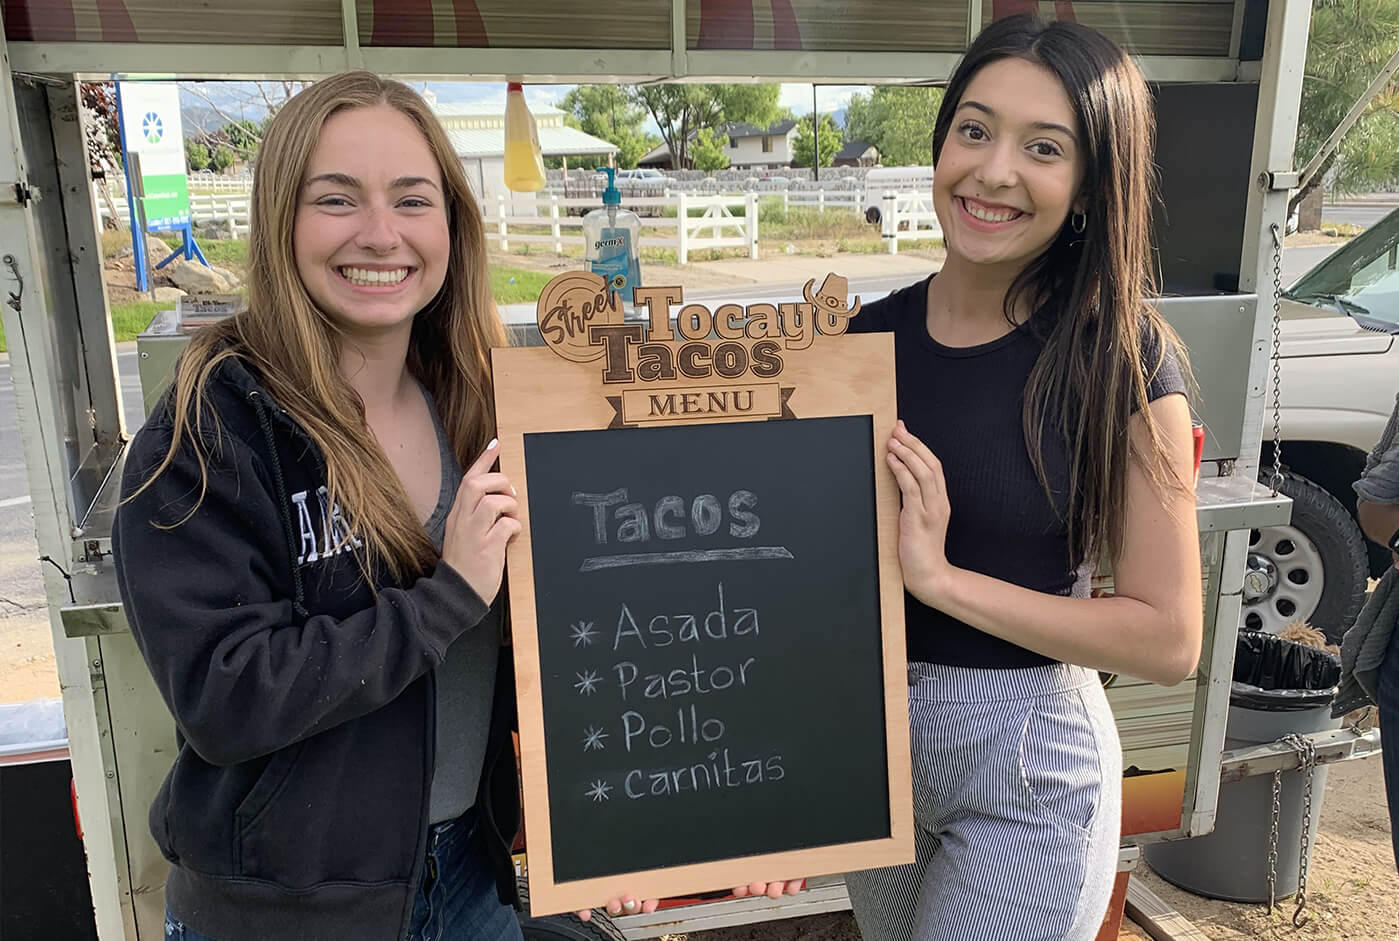 Street
Tocayo
Tacos
MENU
Tacos
* Asada
* Pastor
* Pollo
* Carnitas
germX
Tacos